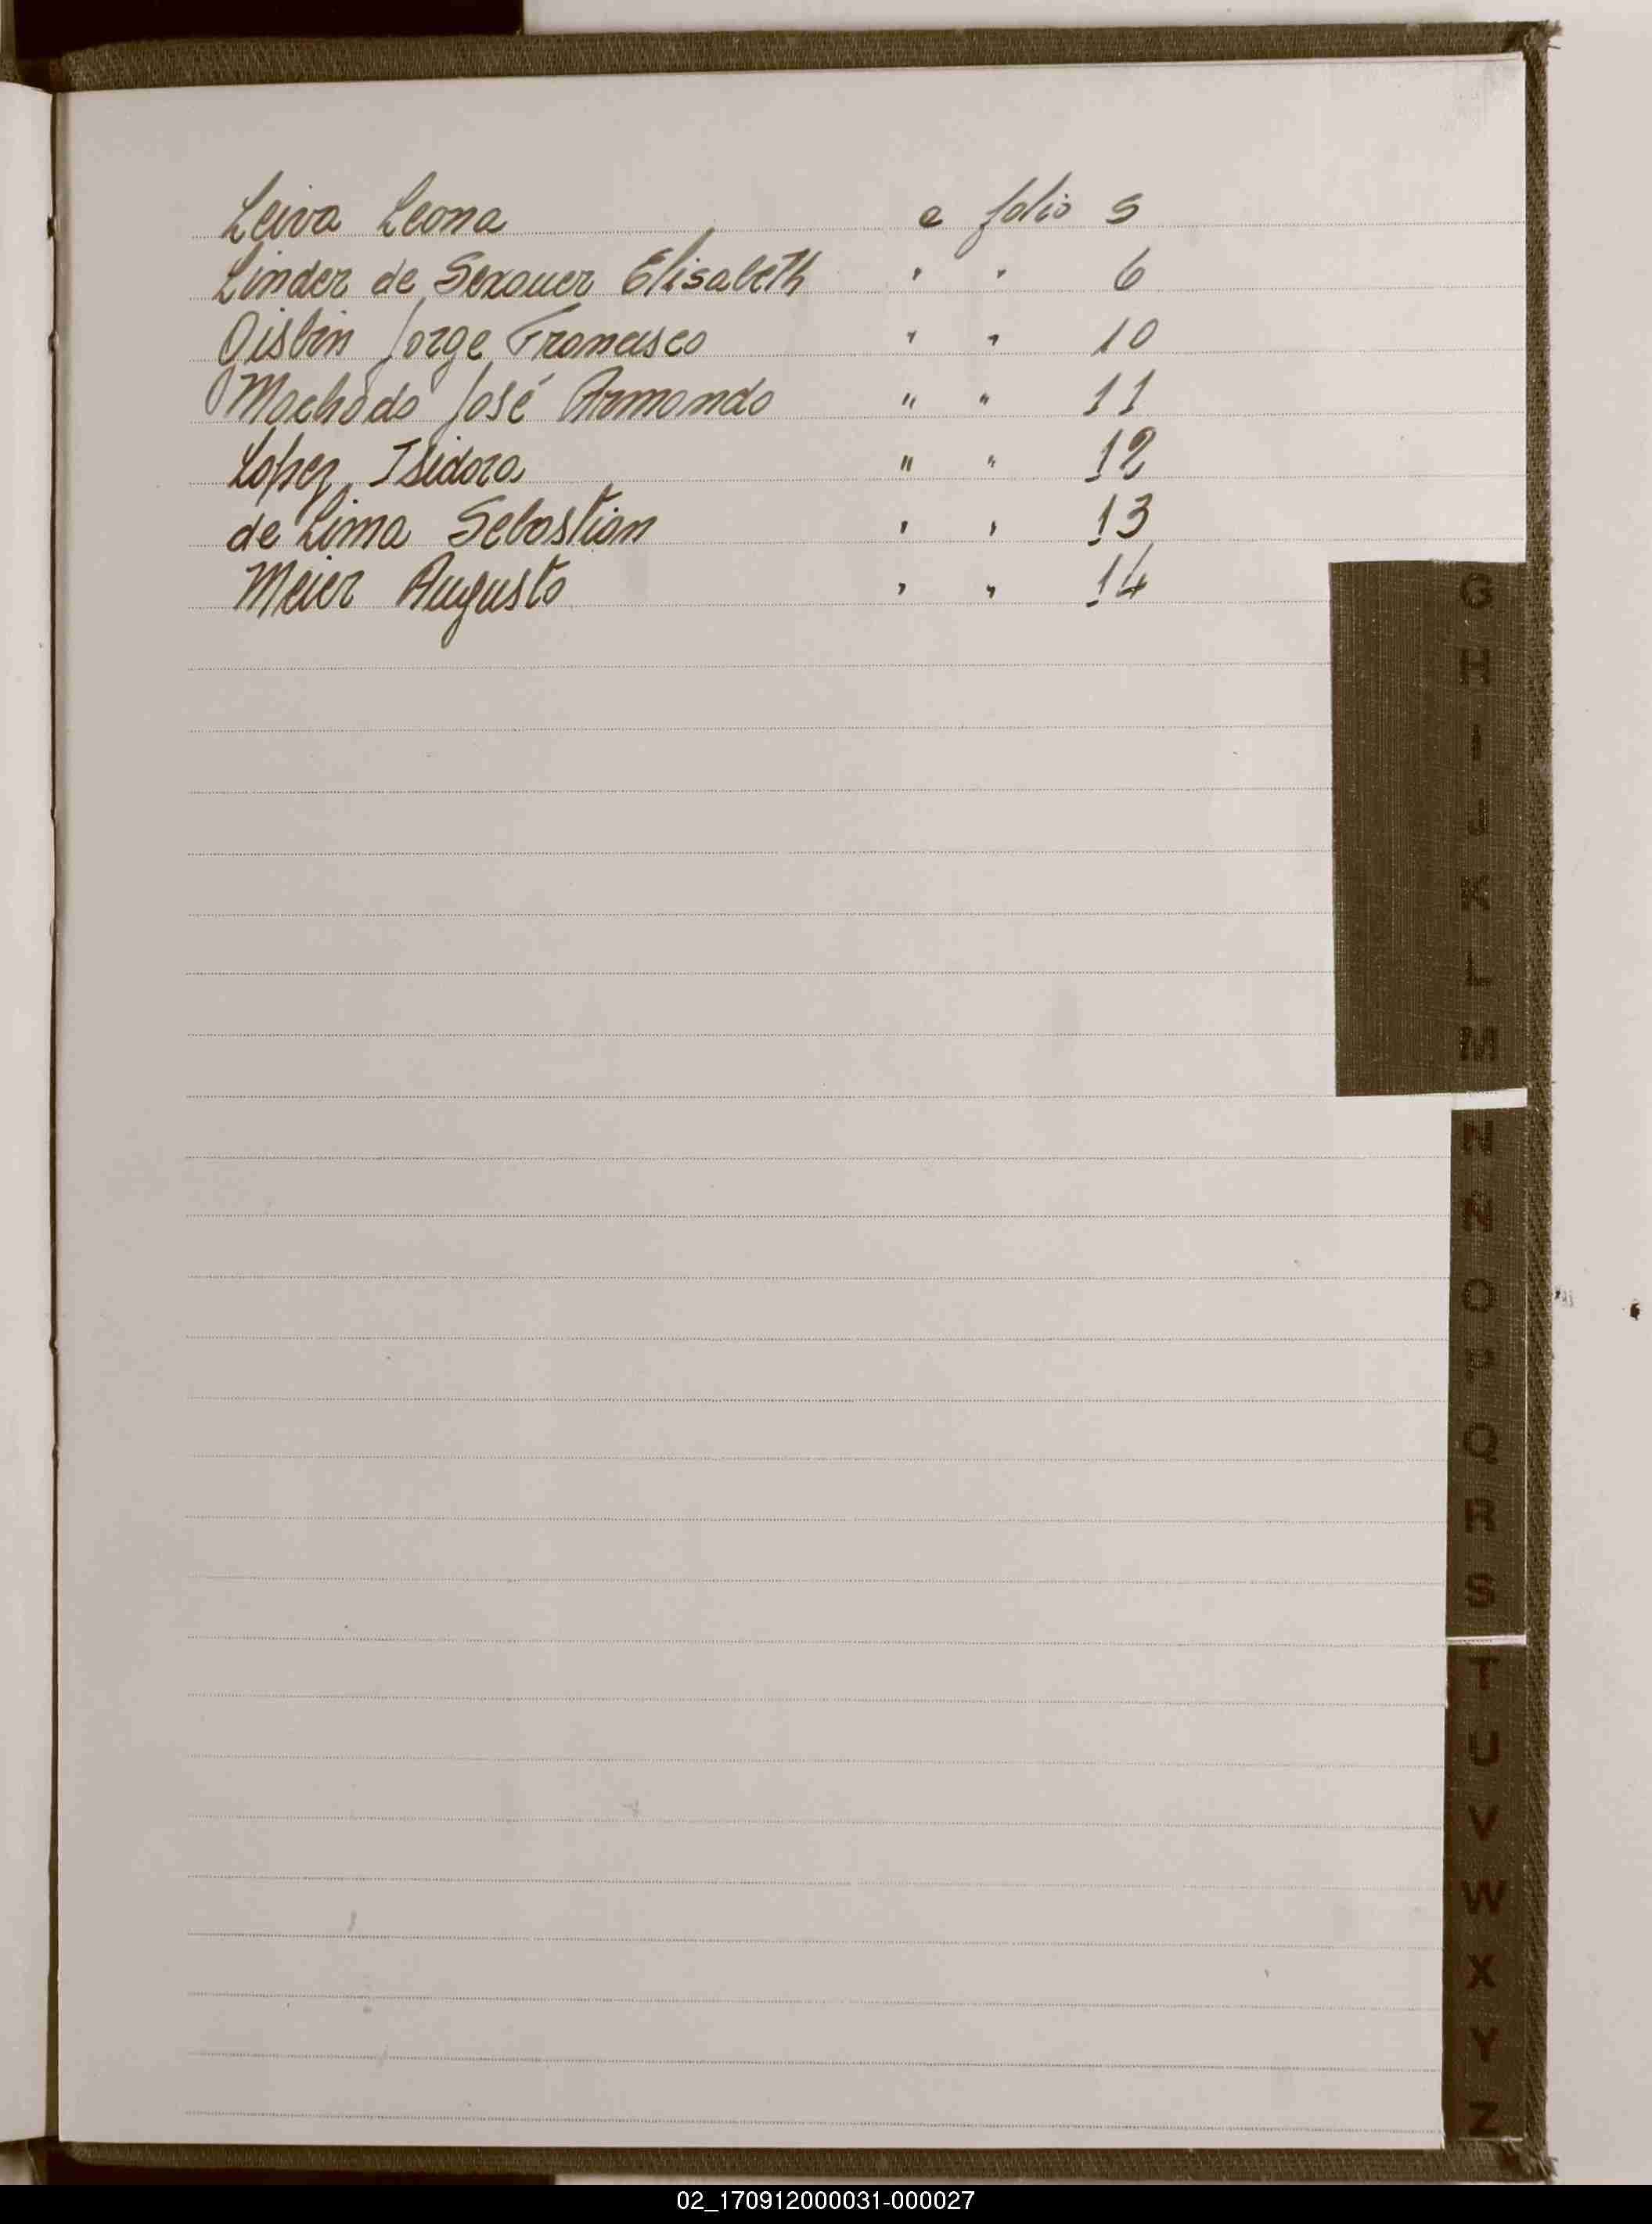 Leiva Leona a folio 5
Linder de Sexauer Elisabeth " " 6
Jorge Francisco " " 10
Machado José Armando " " 11
Lopez, Isidora " " 12
de Lima Sebastian " " 13
Meier Augusto " " 14
G
H
I
J
K
L
M
N
Ñ
O
P
Q
R
S
T
U
V
W
X
Y
Z
02_170912000031-000027